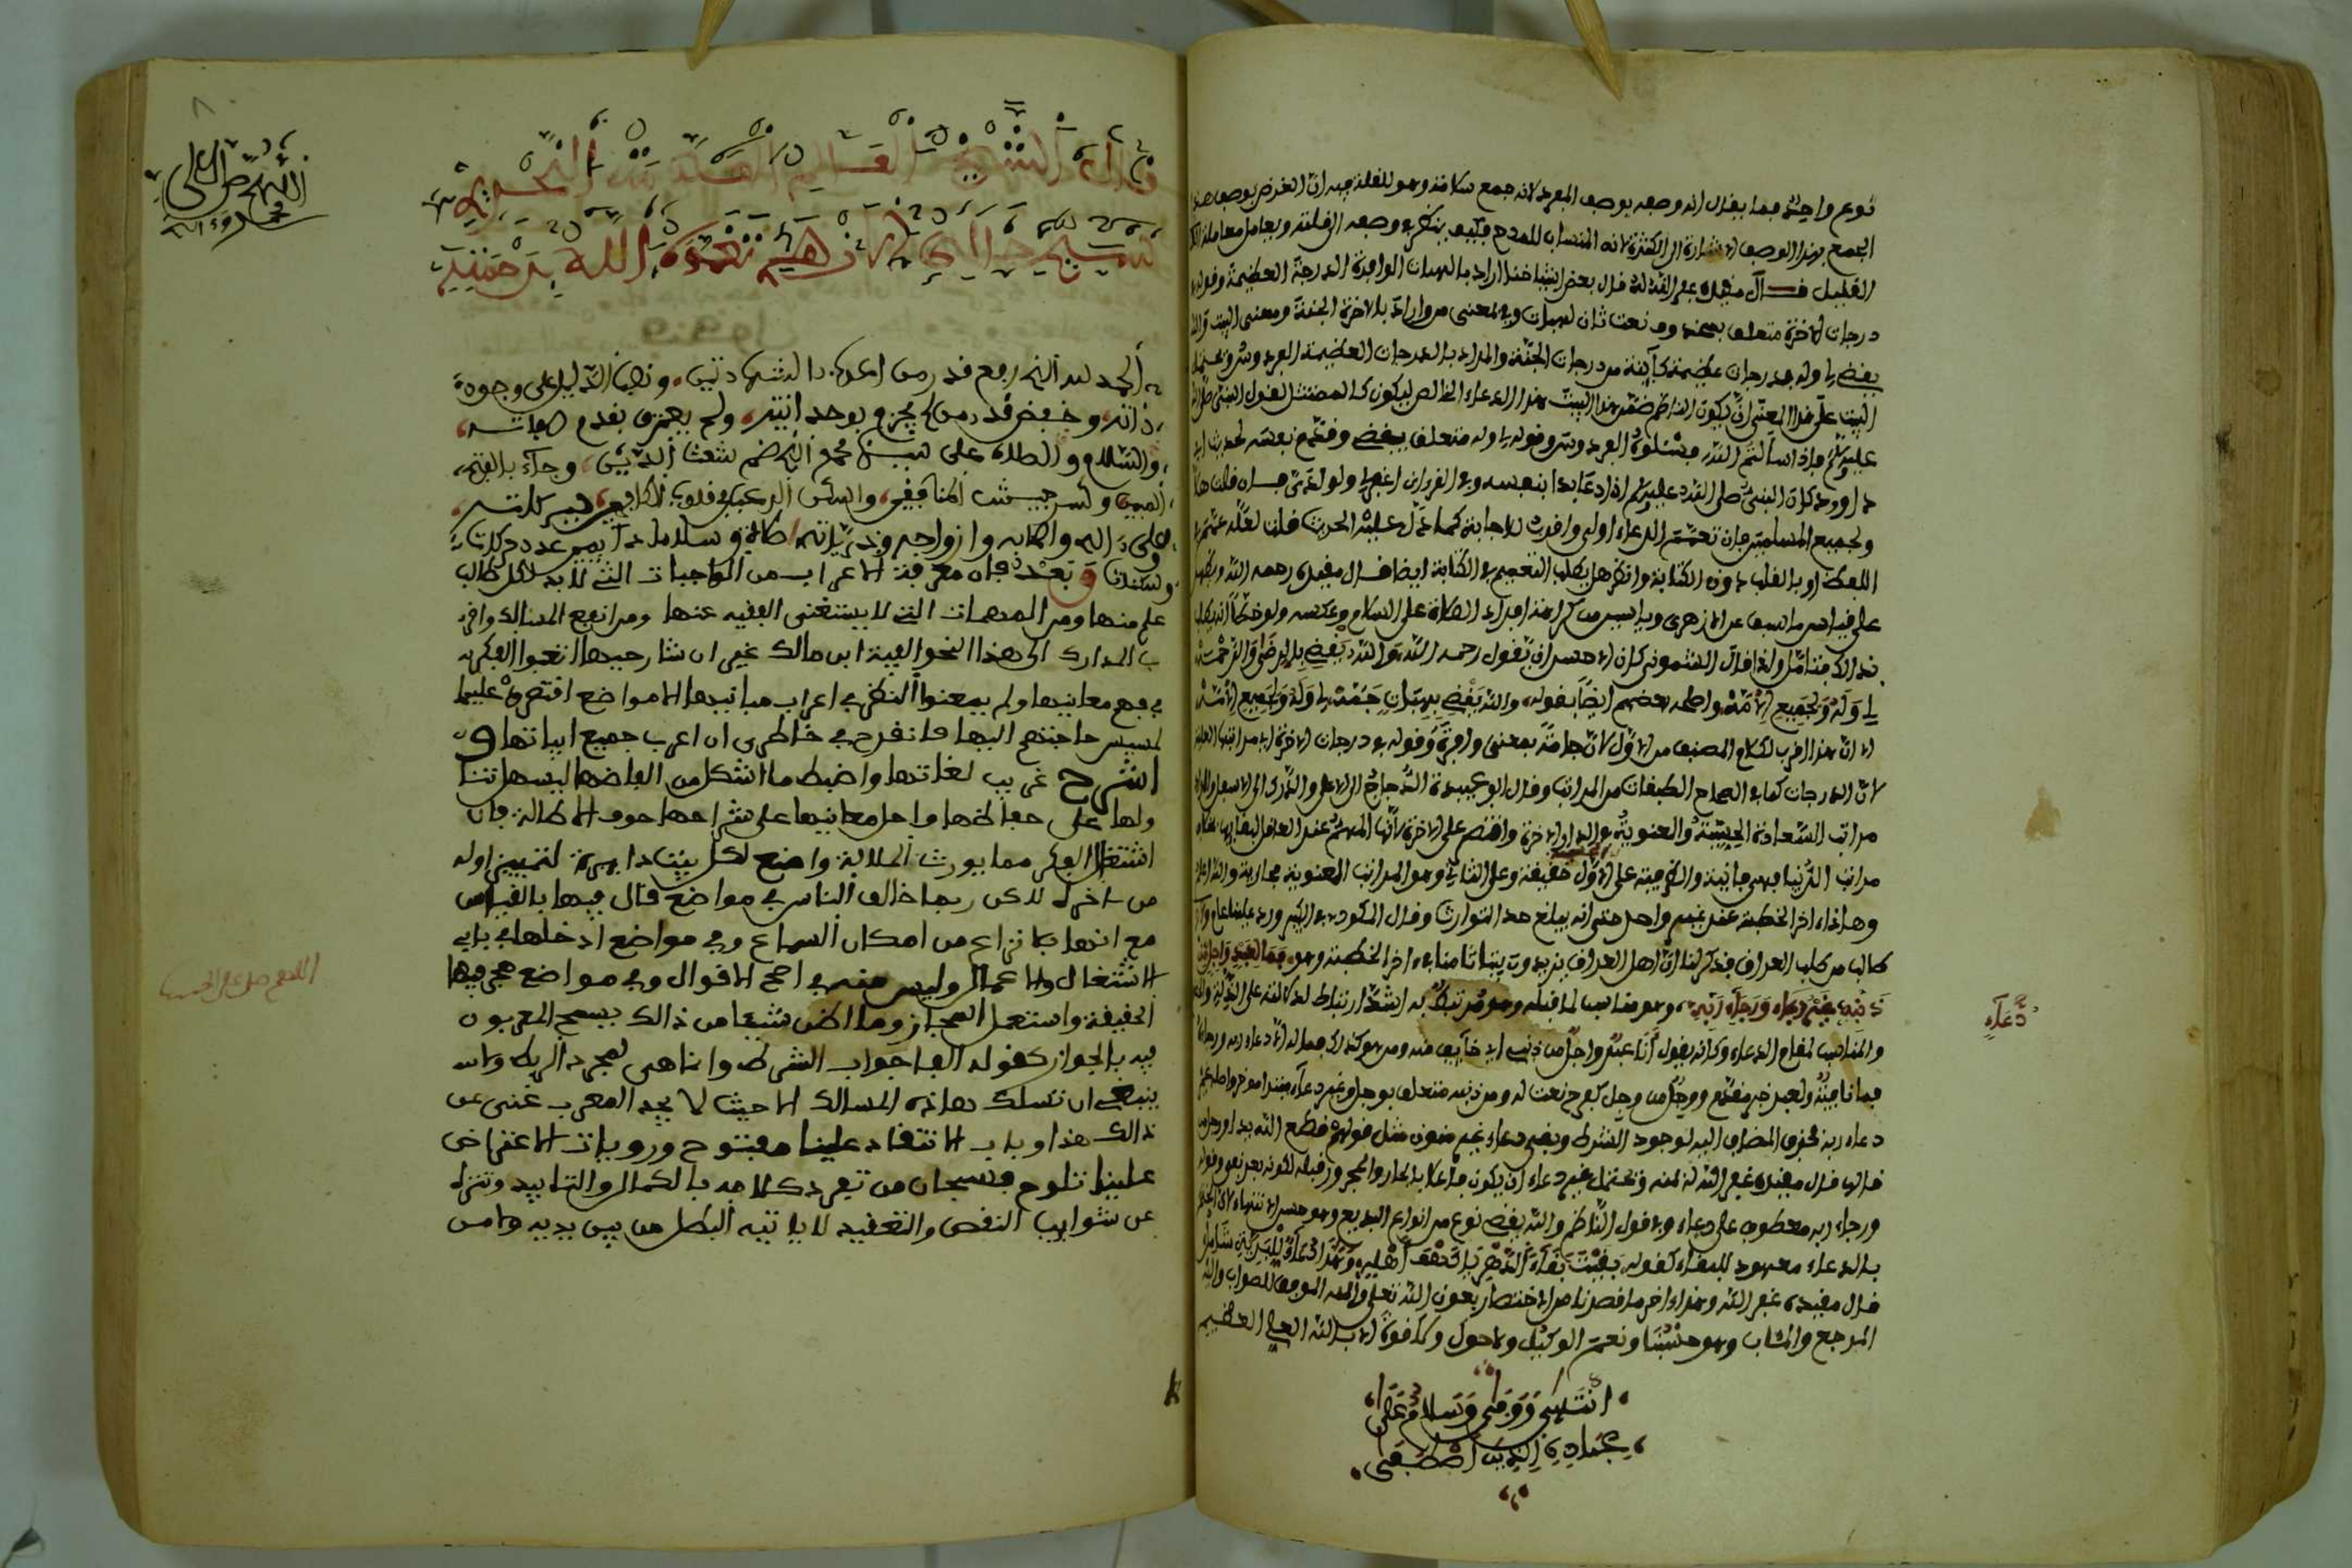 نوع واحد فما يقال انه وصفه بوصف المفرد لانه جمع سلامة وهو للقلة فيه ان الغرض بوصف هذا
الجمع بهذا الوصف الاشارة الى الكثرة لانه المناسب للمدح فكيف ينظر في وصفه الى قلته ويعامل معاملة
القليل قال مقيده غفر الله له قال بعض اشياخنا اراد بالهبات الوافرة الدرجة العظيمة وقوله في
درجات الاخرة متعلق بمحذوف نعت ثان لهبات وفي بمعنى من واراد بالاخرة الجنة ومعنى البيت والله
يقضي لي وله بدرجات عظيمة كائنة من درجات الجنة والمراد بالدرجات العظيمة الفردوس ويحتمل
البيت على هذا المعنى ان يكون الناظم ضمن هذا البيت هذا الدعاء الخالص ليكون كالممتثل لقول النبي صلى الله
عليه وسلم فاذا سألتم الله فسئلوه الفردوس وقوله لي وله متعلق بيقضي وقدم نفسه لحديث ابي
داوود كان النبي صلى الله عليه وسلم اذا دعا بدا بنفسه وفي القرءان اغفر لي ولوالدي فان قلت هلا
ولجميع المسلمين فان تعميم الدعاء اولى واقرب للاجابة كما دل عليه الحديث قلت لعله عمم في
اللفظ او بالقلب دون الكتابة وانظر هل يطلب التعميم في الكتابة ايضا قال مقيده رحمه الله ويظهر
على قياس ما سبق عن الازهري
نداك فتامل ولذا قال الاشموني كان الاحسن ان يقول رحمه الله والله يقضي بالرضى والرحمة
لي وله ولجميع الامة واصلحه بعضهم ايضا بقوله والله يقضي بهبات جمة لي وله ولجميع الامة
الا ان هذا اقرب لكلام المصنف من الاول لان جامة بمعنى وافرة وقوله في درجات الاخرة اي مراتبها العلية
لان الدرجات كما في الصحاح الطبقات من المراتب وقال ابو عبيدة الدرج الى الاعلى والدرك الى الاسفل والمراد
مراتب السعادة الحسية والمعنوية في الدار الاخرة واقتصر على الاخرة لانها المهم عند العاقل
مراتب الدنيا فهي فانية والظرفية على الاول حقيقة وعلى الثاني وهو المراتب المعنوية مجازية والله اعلم
وهاذا اخر الخطبة عند غير واحد حتى انه يبلغ حد التواتر وقال المكودي في الكبير ورد علينا عام
طالب من طلب العراق فذكر لنا ان اهل العراق يزيدون بيتا ثامنا في ءاخر الخطبة وهو فما لعبد واجل من
ذنبه غير دعاء ورجاء ربه وهو مناسب لما قبله ومرتبط به اشد ارتباط لدلالته على الذلة
والمناسب لمقام الدعاء وكانه يقول انا عبد واجل من ذنبي اي خائف منه ومن هو كذلك فما له الا دعاء ربه ورجاؤه
فما نافية ولعبد خبر مقدم ووجل من وجل كفرح نعت له ومن ذنبه متعلق بوجل وغير دعاء مبتدا موخر واصله غير
دعاء ربه فحذف المضاف اليه لوجود الشرط وبقي دعاء غير منون مثل قولهم قطع الله يد ورجل من
قالها قال مقيده غفر الله له ويحتمل غير دعاء ان يكون فاعلا بالجار والمجرور قبله لكونه بعد نفي وقوله
ورجاء ربه معطوف على دعاء وفي قول الناظم والله يقضي نوع من انواع البديع وهو حسن الانتهاء لان الختم
بالدعاء معهود للبقاء كقوله بقيت بقاء الدهر يا كهف اهله وهذا دعاء للبرية شامل
قال مقيده غفر الله وهذا ءاخر ما قصدنا من الاختصار بعون الله تعلى والله الموفق للصواب واليه
المرجع والمئاب وهو حسبنا ونعم الوكيل ولا حول ولا قوة الا بالله العلي العظيم
انتهى ووفى وسلام على
عباده الذين اصطفى
دعاء
اللهم صل على
محمد وءاله
قال الشيخ العالم العلامة النحرير
سيدي خالد الازهري تغمده الله برحمته
الحمد لله الذي رفع قدر من اعرب بالشهادتين ونصب الدليل على وجود
ذاته وخفض قدر من لم يجزم بوحدانيته ولم يعترف بقدم صفاته
والسلام والصلاة على سيدنا محمد الذي ضم شعث الدين وجاء بالفتح
المبين وكسر جيش المنافقين واسكن الرعب في قلوب الكافرين كلماته
وعلى ءاله واصحابه وازواجه وذرياته صلاة وسلاما دائمين عدد حركات
وسكنات وبعد فان معرفة الاعراب من الواجبات التي لا بد لكل طالب
علم منها ومن المهمات التي لا يستغني الفقيه عنها ومن انفع المسالك واقر
ب المدارك الى هذا النحو الفية ابن مالك غير ان شارحيها اتعبوا الفكر
في فهم معانيها ولم يمعنوا النظر في اعراب مبانيها الا مواضع اقتصروا عليها
لمسيس حاجتهم اليها فانقدح في خاطري ان اعرب جميع ابياتها و
اشرح غريب لغاتها واضبط ما اشكل من الفاضها ليسهل تنا
ولها على حفاظها واحل معانيها على شراحها خوف الاطالة فان
اشتغال الفكر مما يورث الملالة واضع لكل بيت دايرة لتمييز اوله
من ءاخره لاكن ربما خالف الناس في مواضع قال فيها بالقياس
مع انها كما نزاع من امكان السماع وفي مواضع ادخلها في باب
الاشتغال والاعمال وليس منه في اصح الاقوال وفي مواضع هجر فيها
الحقيقة واستعمل المجاز وما اظن شيئا من ذالك يسمح المعربون
فيه بالجواز كقوله الفا جواب الشرط وانما هي لمجرد الربط ولا
ينبغي ان تسلك هاذه المسالك الا حيث لا يجد المعرب غنى عن
ذالك هذا وباب الانتقاد علينا مفتوح ورويات الاعتراض
علينا تلوح فسبحان من تفرد كلامه بالكمال والتاييد وتنزه
عن شوايب النقص والتفنيد لا ياتيه البطل من بين يديه ولا من
اللهم صل على الحبيب